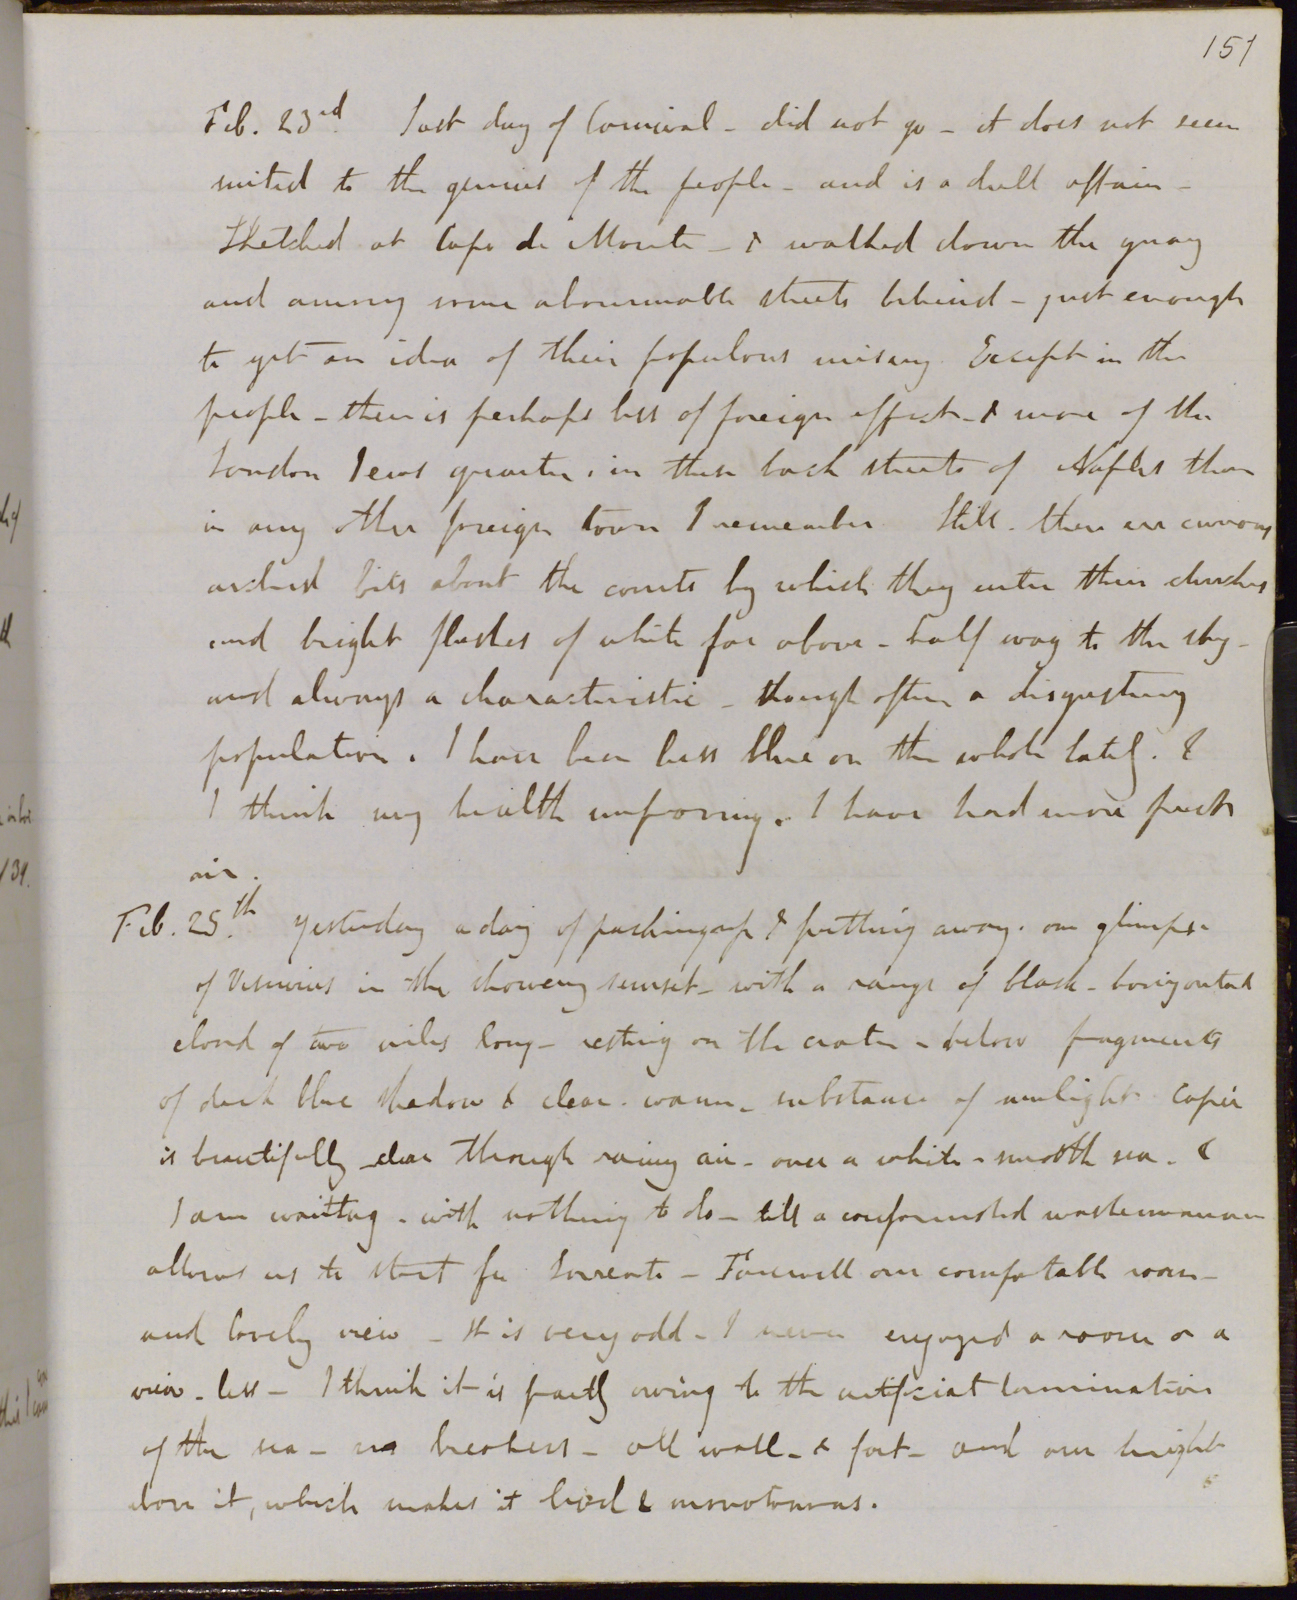 151
Feb. 23rd. Last day of Carnival - did not go - it does not seem
suited to the genius of the people - and is a dull affair -
Sketched at Capo di Monte - & walked down the quay
and among some abominable streets behind - just enough
to get an idea of their populous misery. Except in the
people - there is perhaps less of foreign effect - & more of the
London Jews quarter, in these back streets of Naples than
in any other foreign town I remember. Still. there are curious
arched bits about the courts by which they enter their churches
and bright flashes of white far above - half way to the sky -
and always a characteristic - though often a disgusting
population. I have been less blue on the whole lately. &
I think my health improving. I have had more fresh
air.
Feb. 25th. Yesterday a day of packing up & putting away. one glimpse
of Vesuvius in the showery sunset - with a range of black - horizontal
cloud of two miles long - resting on the crater - below fragments
of dark blue shadow & clear - warm - substance of sunlight. Capri
is beautifully clear through rainy air - over a white - smooth sea - &
I am waiting - with nothing to do - till a confounded washerwoman
allows us to start for Sorrento - Farewell our comfortable room -
and lovely view - It is very odd - I never enjoyed a room or a
view - less - I think it is partly owing to the artificial termination
of the sea - no breakers - all wall - & fort - and our height
above it, which makes it hard & monotonous.